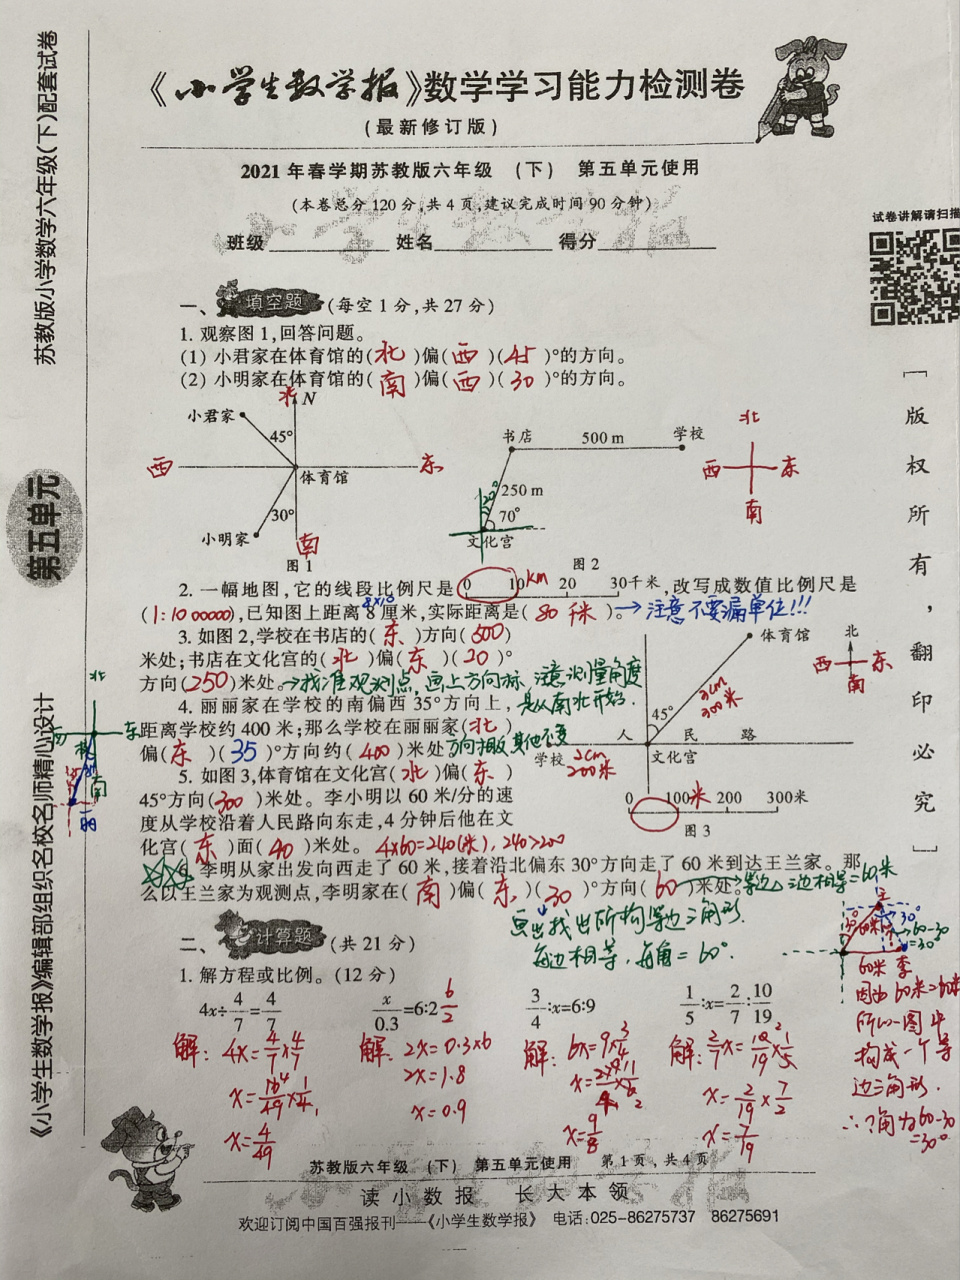 苏教版小学数学六年级(下)配套试卷
第五单元
《小学生数学报》编辑部组织名校名师精心设计
《小学生数学报》数学学习能力检测卷
(最新修订版)
2021年春学期苏教版六年级 (下) 第五单元使用
(本卷总分120分,共4页,建议完成时间90分钟)
班级 姓名 得分
试卷讲解请扫描
版权所有,翻印必究
一、填空题(每空1分,共27分)
1. 观察图1,回答问题。
(1) 小君家在体育馆的(北)偏(西)(45)°的方向。
(2) 小明家在体育馆的(南)偏(西)(30)°的方向。
北 N
小君家
45°
西 东
体育馆
30°
小明家
南
图1
书店 500 m 学校
250 m
20°
70°
文化宫
图2
北
西 东
南
2. 一幅地图,它的线段比例尺是 0 10km 20 30千米,改写成数值比例尺是
(1:1000000),已知图上距离8厘米,实际距离是(80千米)。→注意不要漏单位!!!
8×10
3. 如图2,学校在书店的(东)方向(500)
米处;书店在文化宫的(北)偏(东)(20)°
方向(250)米处。→找准观测点,画上方向标,注意测量角度
是从南北开始.
4. 丽丽家在学校的南偏西35°方向上,
距离学校约400米;那么学校在丽丽家(北)
偏(东)(35)°方向约(400)米处 方向相反,其他不变
5. 如图3,体育馆在文化宫(北)偏(东)
45°方向(300)米处。李小明以60米/分的速
度从学校沿着人民路向东走,4分钟后他在文
化宫(东)面(40)米处。4×60=240(米),240>200
体育馆
北
西 东
南
3cm
300米
45°
人 民 路
学校 2cm
200米
文化宫
0 100米 200 300米
图3
李明从家出发向西走了60米,接着沿北偏东30°方向走了60米到达王兰家。那
么以王兰家为观测点,李明家在(南)偏(东)(30)°方向(60)米处。→等边△三边相等=60米
画出找出所构等边三角形.
每边相等,每角=60°.
北
东
南
王
30°
60米
30°
60-30
=30°
60米 李
因为60米=60米
所以图中
构成一个等
边三角形.
∴?角为60-30
=30°
二、计算题(共21分)
1. 解方程或比例。(12分)
4x÷4/7=4/7 x/0.3=6:2 6/2 3/4:x=6:9 1/5:x=2/7:10/19
解: 4x=4/7×4/7 解: 2x=0.3×6 解: 6x=9×3/4 解: 2/7x=10/19×1/5
x=16/49×1/4 2x=1.8 x=2/19×7/2
x=4/49 x=0.9 x=9/8 x=7/19
苏教版六年级 (下) 第五单元使用 第1页,共4页
读小数报 长大本领
欢迎订阅中国百强报刊——《小学生数学报》 电话:025-86275737 86275691